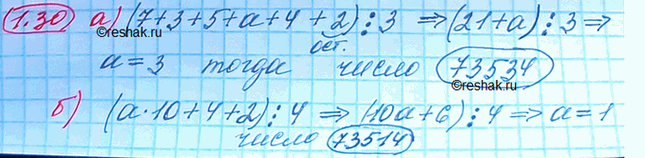 1.30 а) (7+3+5+a+4+2)⋮3 ⇒ (21+a)⋮3 ⇒
ост.
a=3 тогда число 73534
б) (a·10+4+2)⋮4 ⇒ (10a+6)⋮4 ⇒ a=1
число 73514
©reshak.ru
©reshak.ru
©reshak.ru